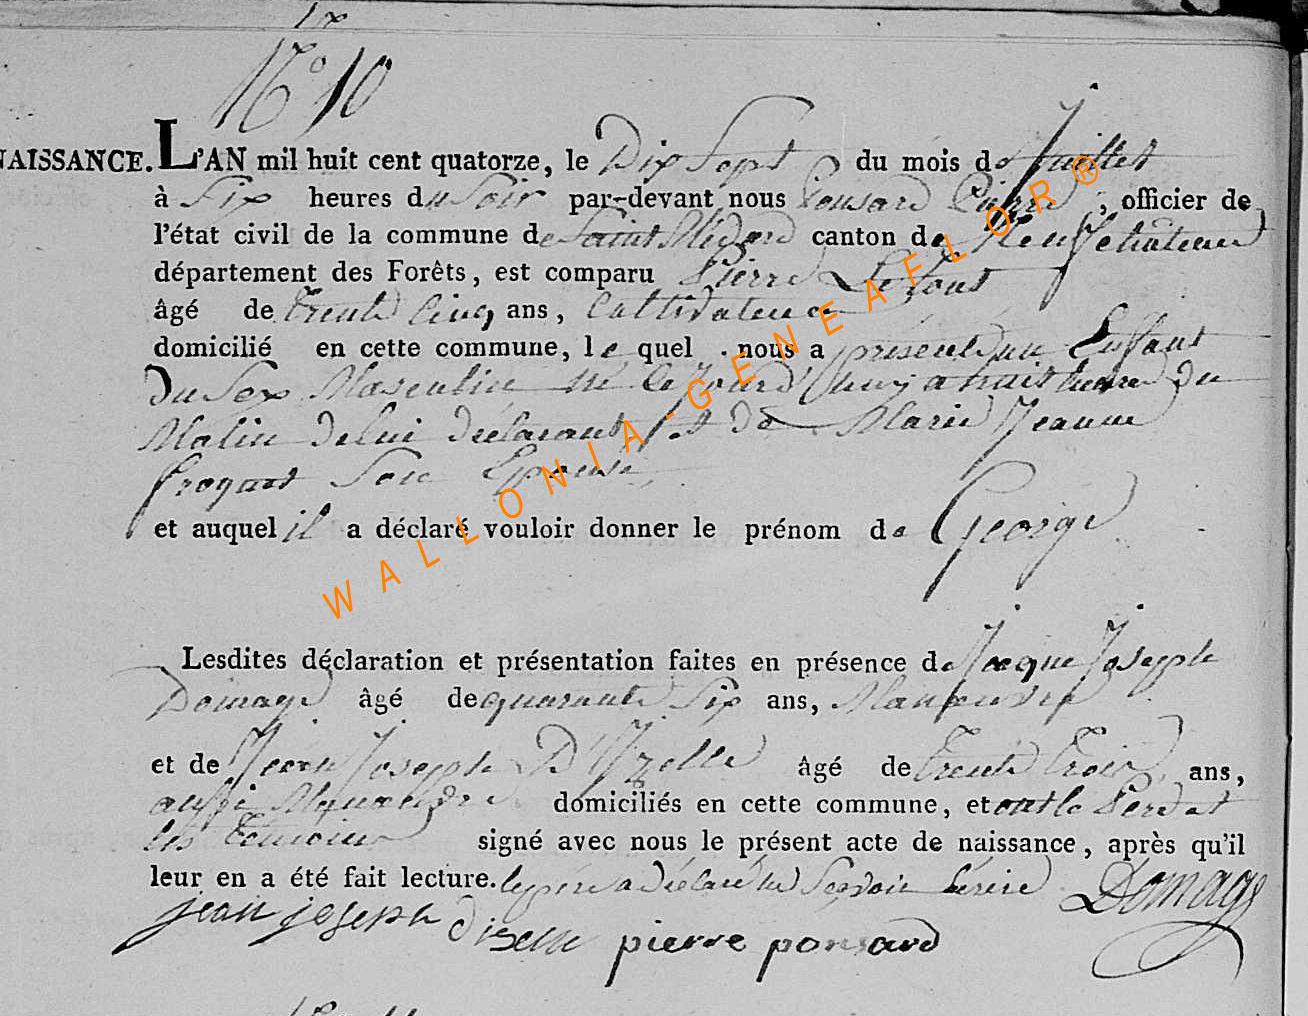 N° 10
NAISSANCE. L'AN mil huit cent quatorze, le Dix Sept du mois de Juillet
à Six heures du Soir par-devant nous Ponsard Pierre, officier de
l'état civil de la commune de Saint Médard canton de Neufchâteau
département des Forêts, est comparu Pierre
âgé de trente Cinq ans, Cultivateur
domicilié en cette commune, le quel nous a présenté un Enfant
Du Sex Masculin né le Jourd'huy a huit heures du
Matin de lui déclarant et de Marie Jeanne
Son Epouse
et auquel il a déclaré vouloir donner le prénom de George
Lesdites déclaration et présentation faites en présence de Jacque Joseph
Domage âgé de quarante Six ans, Manoeuvre
et de Jean Joseph D'Izelle âgé de trente trois ans,
aussi Manoeuvre domiciliés en cette commune, et ont le Per et
les témoins signé avec nous le présent acte de naissance, après qu'il
leur en a été fait lecture. le père a déclaré ne Savoir Ecrire Domage
jean joseph diselle pierre ponsard
WALLONIA-GENEAFLOR®